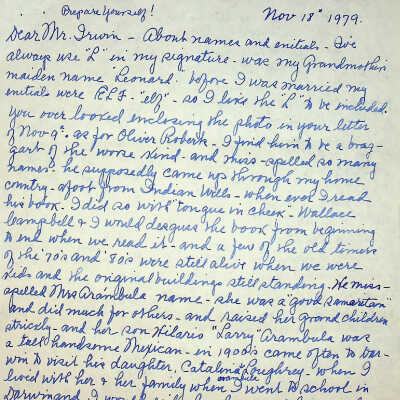 Prepare Yourself!
Nov 18" 1979.
Dear Mr. Irwin - About names and initials - I've
always use "L" in my signature - was my Grandmother's
maiden name "Leonard." before I was married my
initials were "ELF" - "elf" - so I like the "L" to be included.
You over looked enclosing the photo in your letter
of Nov 9" - as for Oliver Roberts - I find him to be a brag-
gart of the worse kind - and miss-spelled so many
names. he supposedly came up through my home
country - afoot from Indian Wells - when ever I read
his book - I did so with "tongue in cheek" - Wallace
Campbell & I would disguss the book from beginning
to end when we read it - and a few of the old timers
of the '70's and '80's were still alive when we were
kids - and the original buildings still standing. He miss-
spelled Mrs Arámbula name - she was a "good samaretan"
and did much for others - and raised her grand children
strickly - and her son Hilario "Larry" Arambula was
a tall handsome Mexican - in 1900s came often to Dar-
win to visit his daughter, Catalina Loughrey - when I
lived with her & her family when I went to school in
Darwin and I would